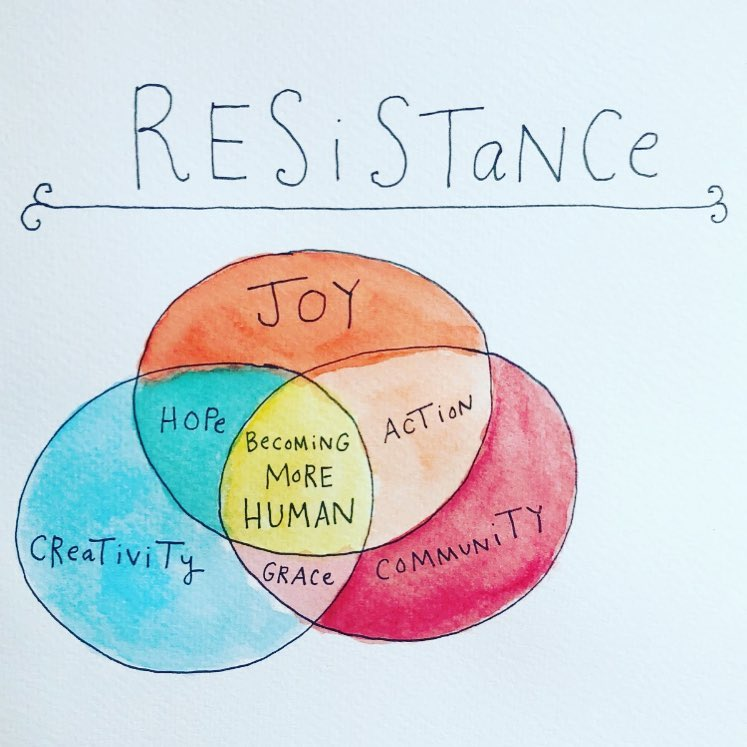 RESiSTaNCe
JOY
HOPe
ACTiON
BeCOMiNG
MoRE
HUMAN
CReaTiviTy
GRACe
COMMUNiTY